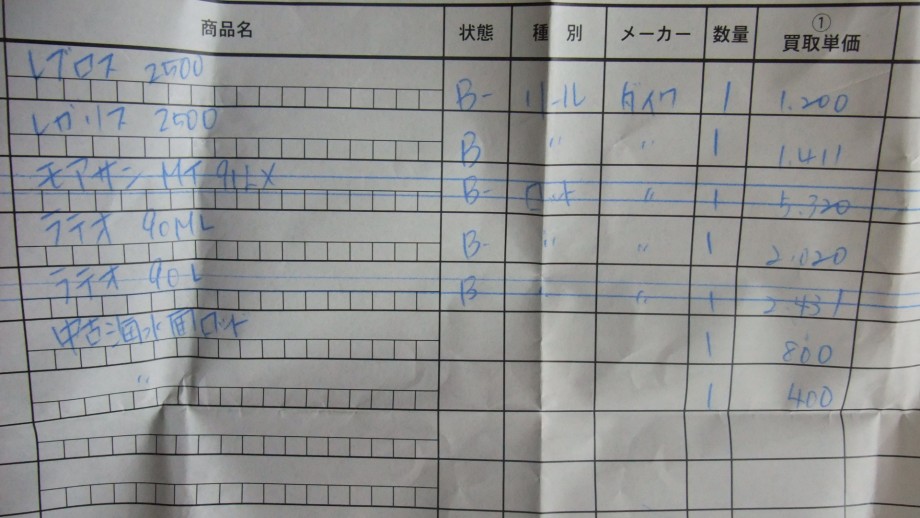 商品名 状態 種別 メーカー 数量 ① 買取単価
レブロス 2500 B- リール ダイワ 1 1.200
レガリス 2500 B 〃 〃 1 1.411
モアザン MT 91LX B- ロッド 〃 1 5.320
ラテオ 90ML B- 〃 〃 1 2.020
ラテオ 90L B 〃 1 2.431
中古海水面ロッド 1 800
〃 1 400